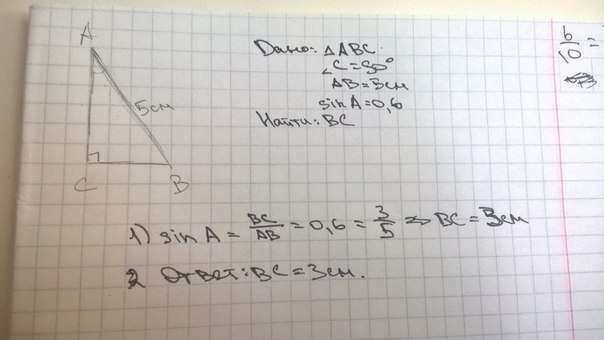 A
5см
C
B
Дано: △ABC.
∠C=90°
AB=5см
sinA=0,6
Найти: BC
6/10 =
1) sinA = BC/AB = 0,6 = 3/5 => BC = 3см
2 Ответ: BC = 3см.